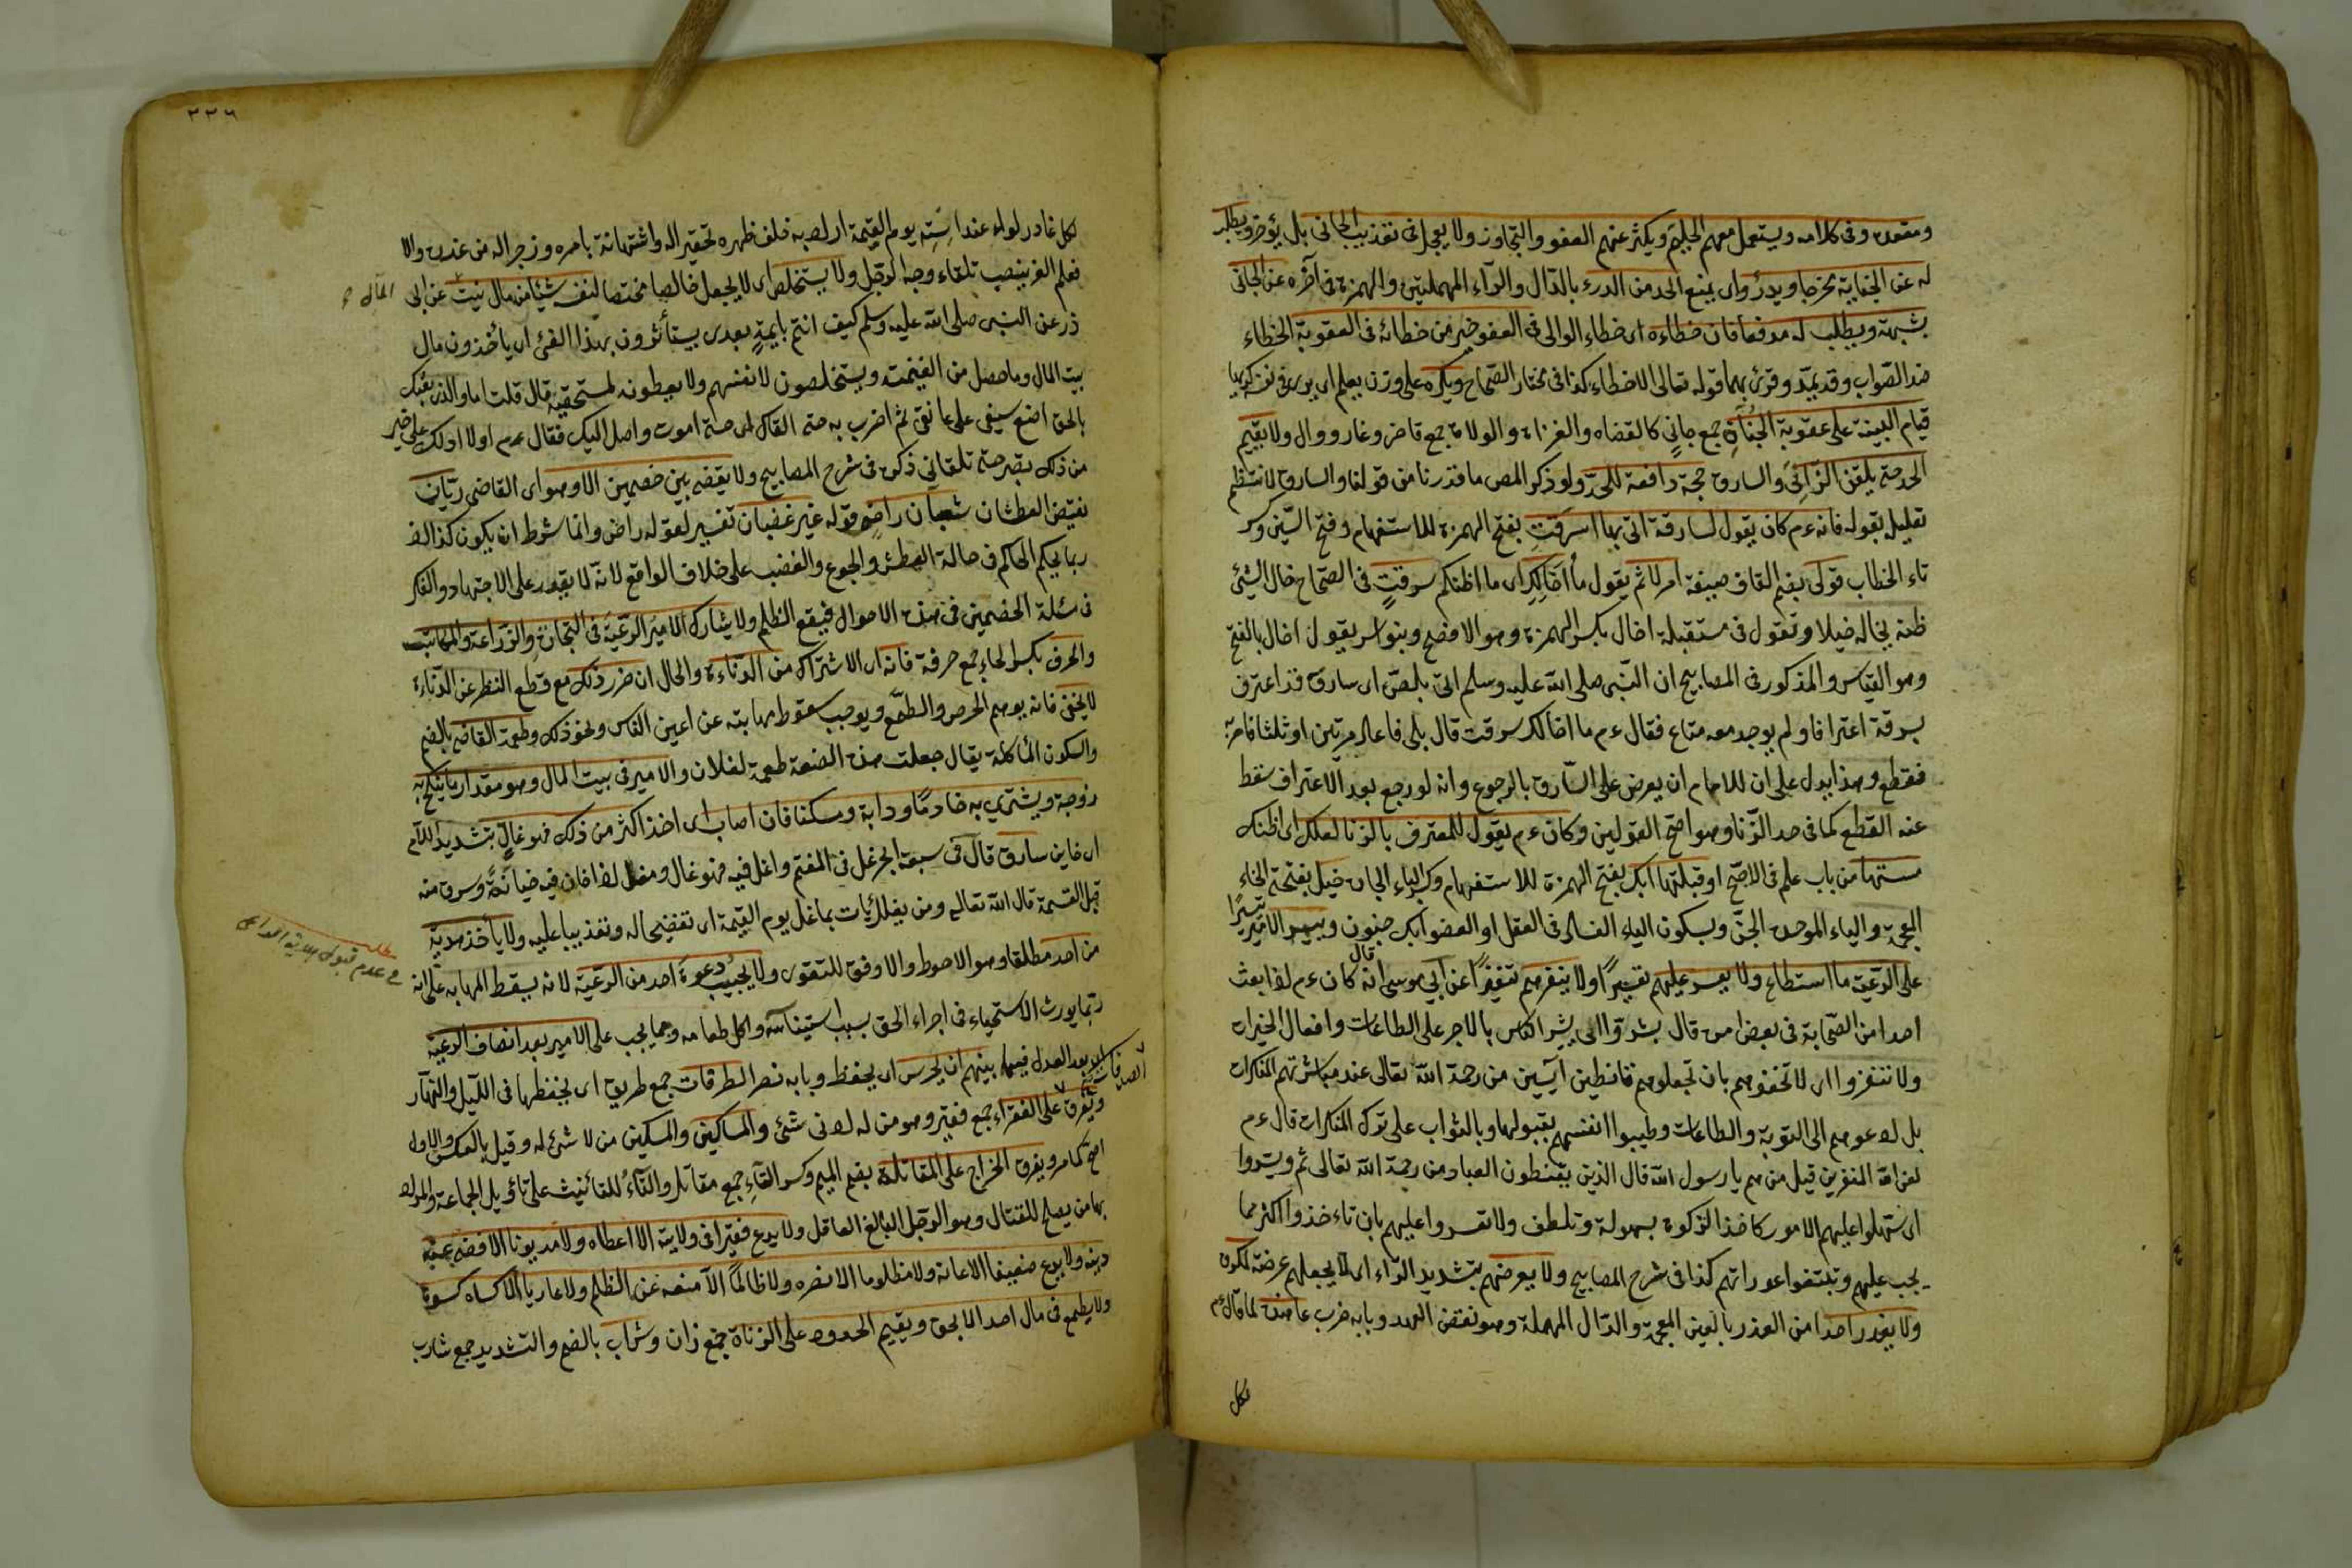 ومقعده وفى كلامه ويستعمل معهم الحلم ويكثر عنهم العفو والتجاوز ولا يعجل فى تعذيب الجانى بل يؤخر ويطلب
له عن الجناية مخرجا ويدرؤ اى يمنع الحد من الدرء بالدال والراء المهملتين والهمزة فى آخره عن الجانى
بشبهة ويطلب له مدفعا فان خطاءه اى خطاء الوالى فى العفو خير من خطائه فى العقوبة الخطاء
ضد الصواب وقد يمد وقرئ بهما قوله تعالى الا خطاء كذا فى مختار الصحاح ويكره على وزن يعلم اى يرى فى نفسه كريها
قيام البينة على عقوبة الجناة جمع جانٍ كالقضاه والغزاة والولاة جمع قاض وغاز ووال ولا يقيم
الحد حتى يلقن الزانى والسارق حجة دافعة للحد ولو ذكر المص ما قدرنا من قولنا والسارق لانتظم
تعليله بقوله فانه عم كان يقول لسارقة اتى بها اسرقت بفتح الهمزة للاستفهام وفتح السين وكسر
تاء الخطاب قولى بضم القاف صيغة امر لا ثم يقول ما اخالك اى ما اظنكم سرقتِ فى الصحاح خال الشئ
ظنه يخاله خيلا وتقول فى مستقبله اخال بكسر الهمزة وهو الافصح وبنو اسد يقول اخال بالفتح
وهو القياس والمذكور فى المصابيح ان النبى صلى الله عليه وسلم اتى بلص اى سارق قد اعترف
بسرقة اعترافا ولم يوجد معه متاع فقال عم ما اخالك سرقت قال بلى فاعاد مرتين او ثلثا فامر به
فقطع وهذا يدل على ان للامام ان يعرض على السارق بالرجوع وانه لو رجع بعد الاعتراف سقط
عنه القطع كما فى حد الزنا وهو اصح القولين وكان عم يقول للمعترف بالزنا لعلك اى اظنك
مستها من باب علم فى الاصح او قبلتها ابك بفتح الهمزة للاستفهام وكسر الباء الجارة خبل بفتحة الخاء
المعجمة والباء الموحدة الجن وبسكون الباء الفساد فى العقل او العضو ابك جنون وييسر الامير تيسيرًا
على الرعية ما استطاع ولا يعسر عليهم تعسيرًا ولا ينفرهم تنفيرًا عن ابى موسى انه قال كان عم اذا بعث
احدا من الصحابة فى بعض امره قال بشروا اى بشر الناس بالاجر على الطاعات وافعال الخيرات
ولا تنفروا اى لا تخوفوهم بان تجعلوهم قانطين آيسين من رحمة الله تعالى عند مباشرتهم المنكرات
بل ادعوهم الى التوبة والطاعات وطيبوا انفسهم بقبولها وبالثواب على ترك المنكرات قال عم
لعن الله المنفرين قيل من هم يا رسول الله قال الذين يقنطون العباد من رحمة الله تعالى ثم ويسروا
اى سهلوا عليهم الامور كاخذ الزكوة بسهولة وتلطف ولا تعسروا عليهم بان تاءخذوا اكثر مما
يجب عليهم وتتبعوا عوراتهم كذا فى شرح المصابيح ولا يعرضهم بتشديد الراء اى لا يجعلهم عرضة لمكروه
ولا يغدر احدا من الغدر بالغين المعجمة والدال المهملة وهو نقض العهد وبابه ضرب عاهده لما قال عم
لكل
٢٢٦
لكل غادر لواء عند استه يوم القيمة اى الصق به خلف ظهره تحقيرا له واستهانة بامره وزجرا له من غدره والا
فعلم العز ينصب تلقاء وجه الرجل ولا يستخلص اى لا يجعل خالصا مختصا لنفسه شيئا من مال بيت عن ابى
المال
ذر عن النبى صلى الله عليه وسلم كيف انتم بايمة بعدى يستأثرون بهذا الفئ اى يأخذون مال
بيت المال وما حصل من الغنيمة ويستخلصون لانفسهم ولا يعطونه لمستحقيه قال قلت اما والذى بعثك
بالحق اضع سيفى على عاتقى ثم اضرب به حتى القاك اى حتى اموت واصل اليك فقال عم اولا ادلك على خير
من ذلك تصبر حتى تلقانى ذكره فى شرح المصابيح ولا يقضى بين خصمين الا وهو اى القاضى ريان
نقيض العطشان شبعان راض قوله غير غضبان تفسير لقوله راض وانما شرط ان يكون كذا اذ
ربما يحكم الحاكم فى حالة العطش والجوع والغضب على خلاف الواقع لانه لا يقدر على الاجتهاد والفكر
فى مسئلة الخصمين فى هذه الاحوال فيقع الظلم ولا يشارك الامير الرعية فى التجارة والزراعة والمكاسب
والحرف بكسر الحاء جمع حرفة فانه اى الاشتراك من الدناءة والحال ان ضرر ذلك مع قطع النظر عن الدناءة
لا يخفى فانه يوهم الحرص والطمع ويوجب سقوط مهابته عن اعين الناس ونحو ذلك وطعمة القاضى بالضم
والسكون المأكلة يقال جعلت هذه الضيعة طعمة لفلان والامير فى بيت المال وهو مقدار ما ينكح به
زوجة ويشترى به خادمًا ودابة ومسكنا فان اصاب اى اخذ اكثر من ذلك فهو غالّ بتشديد اللام
اى خاين سارق قال فى سبعة ابحر غل فى المغنم واغل فيه فهو غال ومغل اذا خان فيه خيانةً وسرق منه
قبل القسمة قال الله تعالى ومن يغلل يأت بما غل يوم القيمة اى تفضيحا له وتعذيبا عليه ولا يأخذ هدية
من احد مطلقا وهو الاحوط والاوفق للتقوى ولا يجيب دعوة احد من الرعية لانه يسقط المهابة على انه
مطلب
فى عدم قبول هدية
ربما يورث الاستحياء فى اجراء الحق بسبب استيناسه واكل طعامه ومما يجب على الامير بعد انصاف الرعية
اى بعد العدل فيما بينهم ان يحرس اى يحفظ وبابه نصر الطرقات جمع طريق اى يحفظها فى الليل والنهار
ويفرق على الفقراء جمع فقير وهو من له ادنى شئ والمساكين والمسكين من لا شئ له وقيل بالعكس والاول
الصدقات
اصح كما مر ويفرق الخراج على المقاتلة بضم الميم وكسر التاءِ جمع مقاتل والتاءُ للتأنيث على تأويل الجماعة والمراد
بها من يصلح للقتال وهو الرجل البالغ العاقل ولا يدع فقيرا فى ولايته الا اعطاه ولا مديونا الا قضى عنه
دينه ولا يدع ضعيفا الا اعانه ولا مظلوما الا نصره ولا ظالمًا الا منعه عن الظلم ولا عاريا الا كساه كسوة
ولا يطمع فى مال احد الا بحق ويقيم الحدود على الزناة جمع زان وشراب بالضم والتشديد جمع شارب